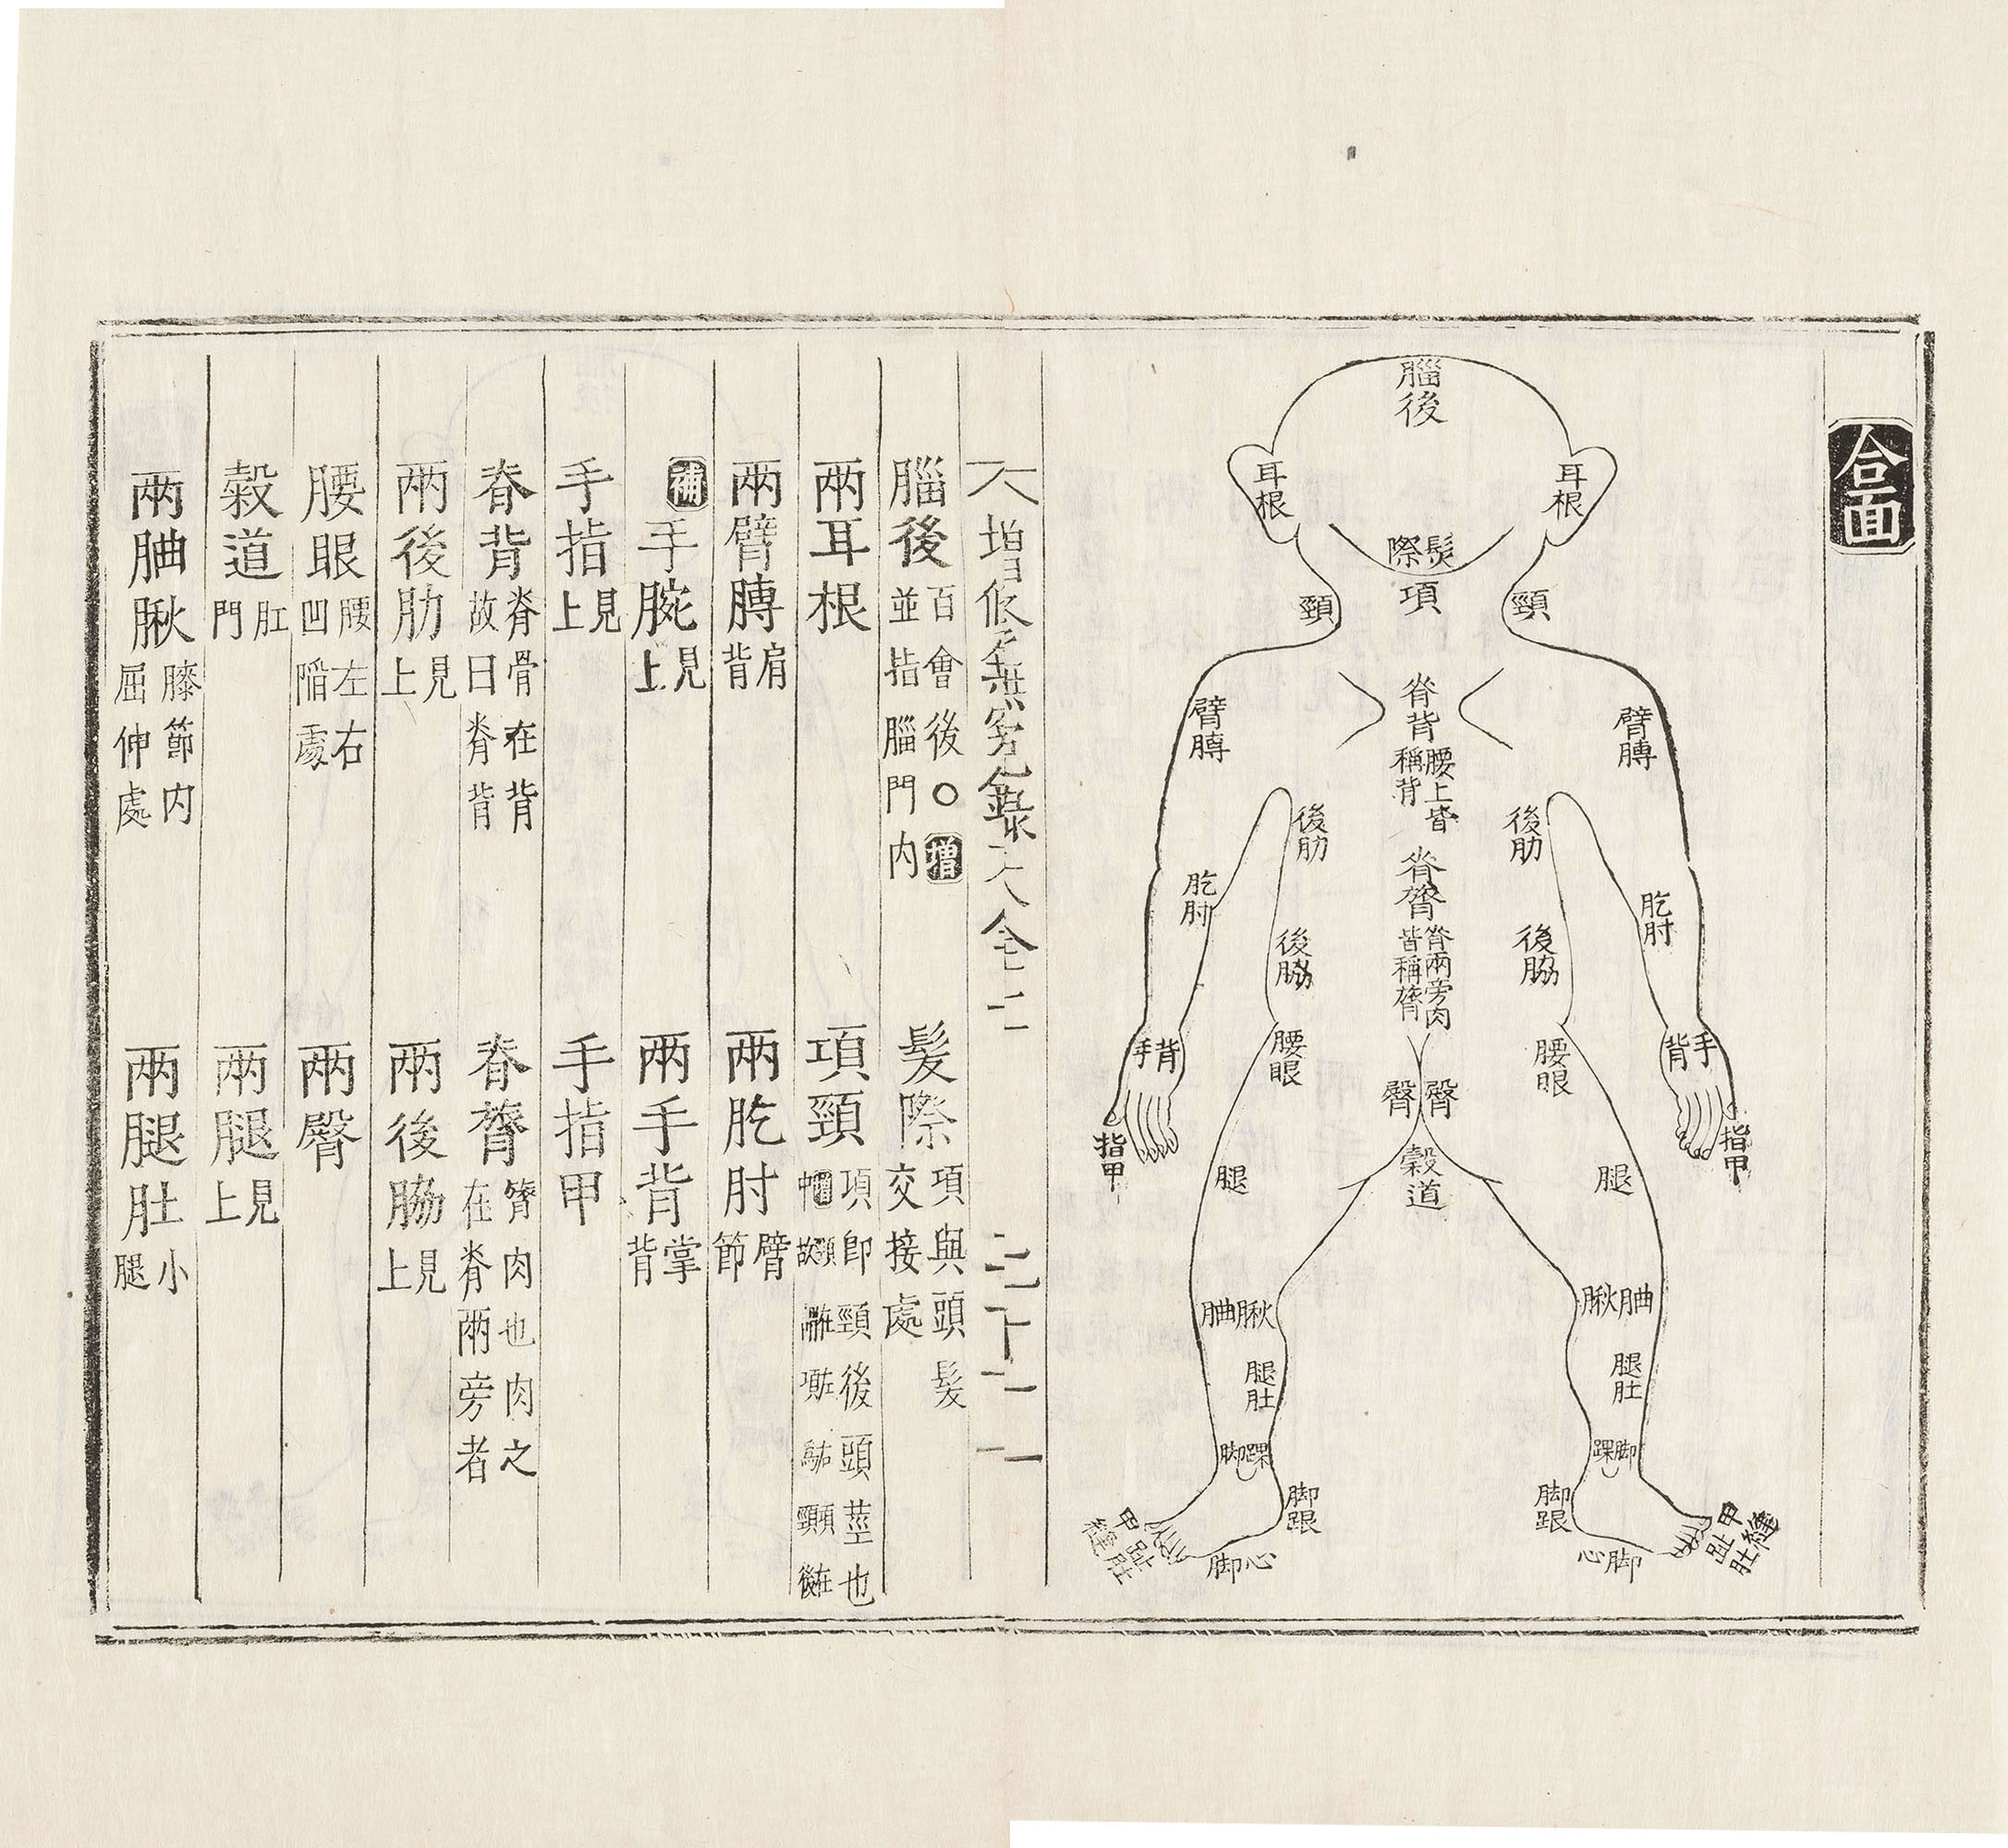 合面
腦後
耳根
耳根
髮際
項
頸
頸
脊背
腰上皆
稱背
臂膊
臂膊
後肋
後肋
脊膂
脊兩旁肉
皆稱膂
肐肘
肐肘
後脇
後脇
手背
手背
腰眼
腰眼
臀
臀
指甲
指甲
穀道
腿
腿
䏔腘
腿肚
腿肚
脚踝
脚踝
脚跟
脚跟
脚心
脚心
甲趾
縫肚
甲趾
縫肚
增修無冤錄大全
腦後 百會後○增
並指腦門內
髮際 項與頭髮
交接處
兩耳根
項頸 項卽頸後頭莖也
兩臂膊 肩
背
兩肐肘 臂
節
補手腕 見
上
兩手背 掌
背
手指 見
上
手指甲
脊背 脊骨在背
故曰脊背
脊膂 膂肉也肉之
在脊兩旁者
兩後肋 見
上
兩後脇 見
上
腰眼 腰左右
凹陷處
兩臀
穀道 肛
門
兩腿 見
上
膝節內
屈伸處
兩腿肚 小
腿